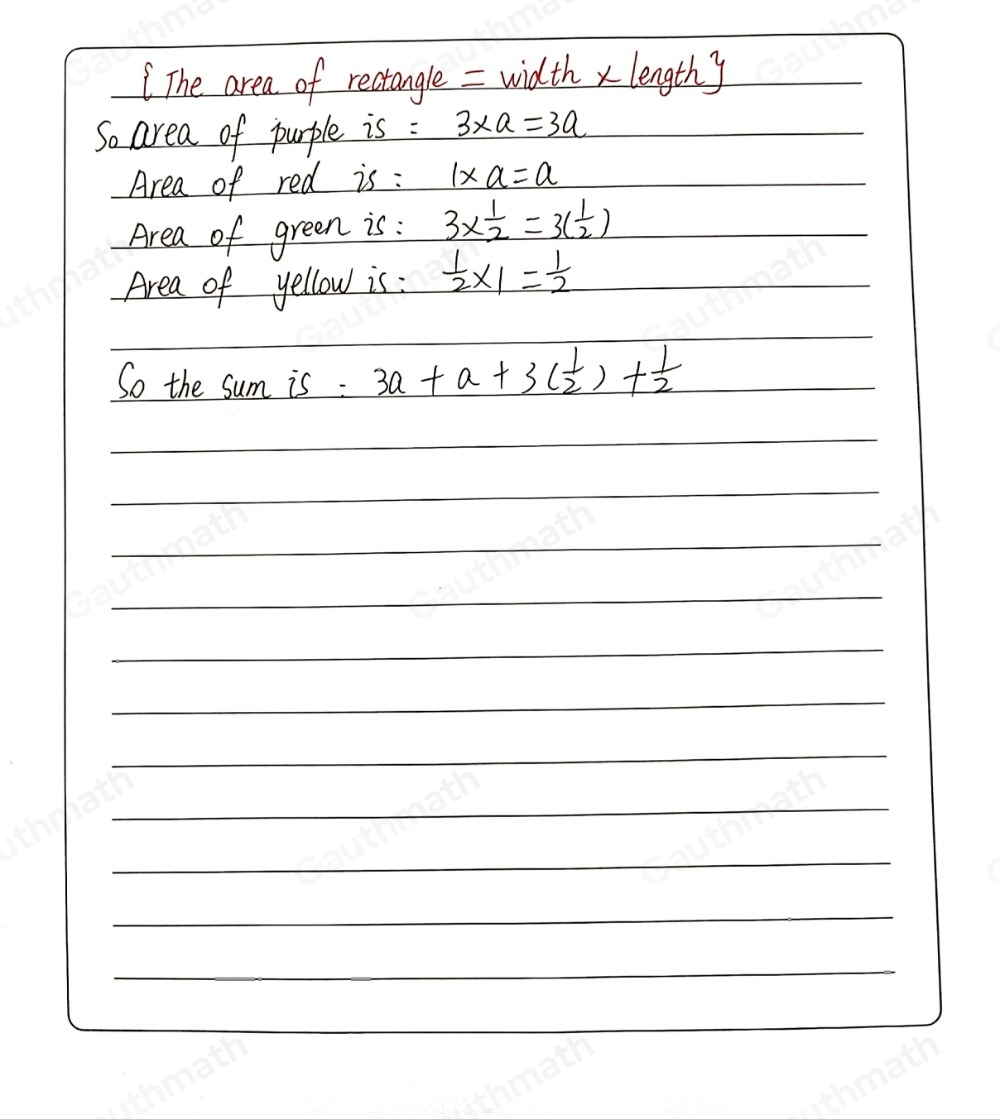 { The area of rectangle = width × length }
So area of purple is : 3×a=3a
Area of red is : 1×a=a
Area of green is : 3×1/2 = 3(1/2)
Area of yellow is : 1/2×1 = 1/2
So the sum is : 3a + a + 3(1/2) + 1/2
Gauthmath